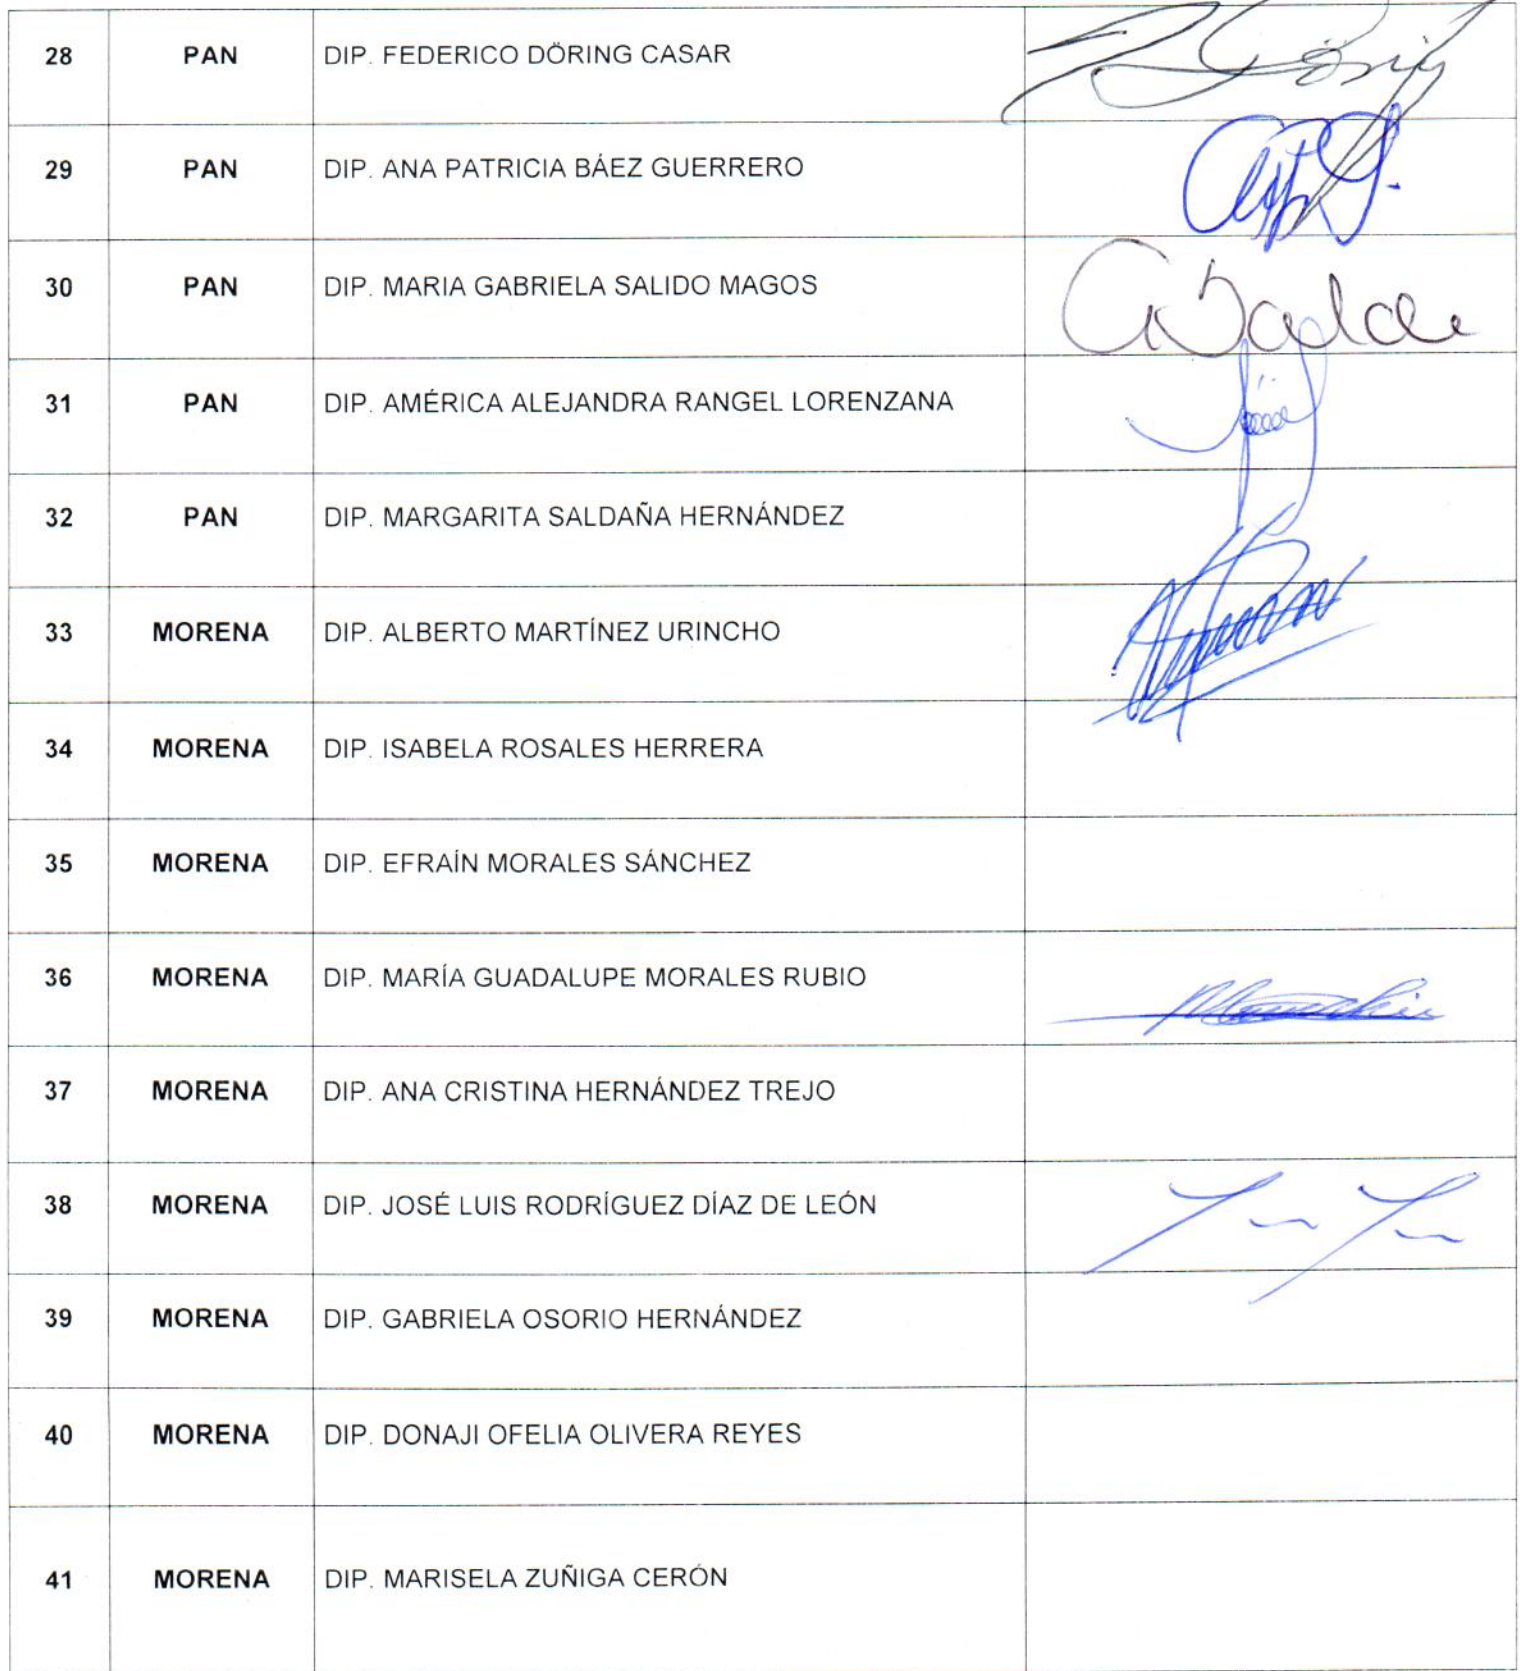 28 PAN DIP. FEDERICO DÖRING CASAR
29 PAN DIP. ANA PATRICIA BÁEZ GUERRERO
30 PAN DIP. MARIA GABRIELA SALIDO MAGOS
31 PAN DIP. AMÉRICA ALEJANDRA RANGEL LORENZANA
32 PAN DIP. MARGARITA SALDAÑA HERNÁNDEZ
33 MORENA DIP. ALBERTO MARTÍNEZ URINCHO
34 MORENA DIP. ISABELA ROSALES HERRERA
35 MORENA DIP. EFRAÍN MORALES SÁNCHEZ
36 MORENA DIP. MARÍA GUADALUPE MORALES RUBIO
37 MORENA DIP. ANA CRISTINA HERNÁNDEZ TREJO
38 MORENA DIP. JOSÉ LUIS RODRÍGUEZ DÍAZ DE LEÓN
39 MORENA DIP. GABRIELA OSORIO HERNÁNDEZ
40 MORENA DIP. DONAJI OFELIA OLIVERA REYES
41 MORENA DIP. MARISELA ZUÑIGA CERÓN